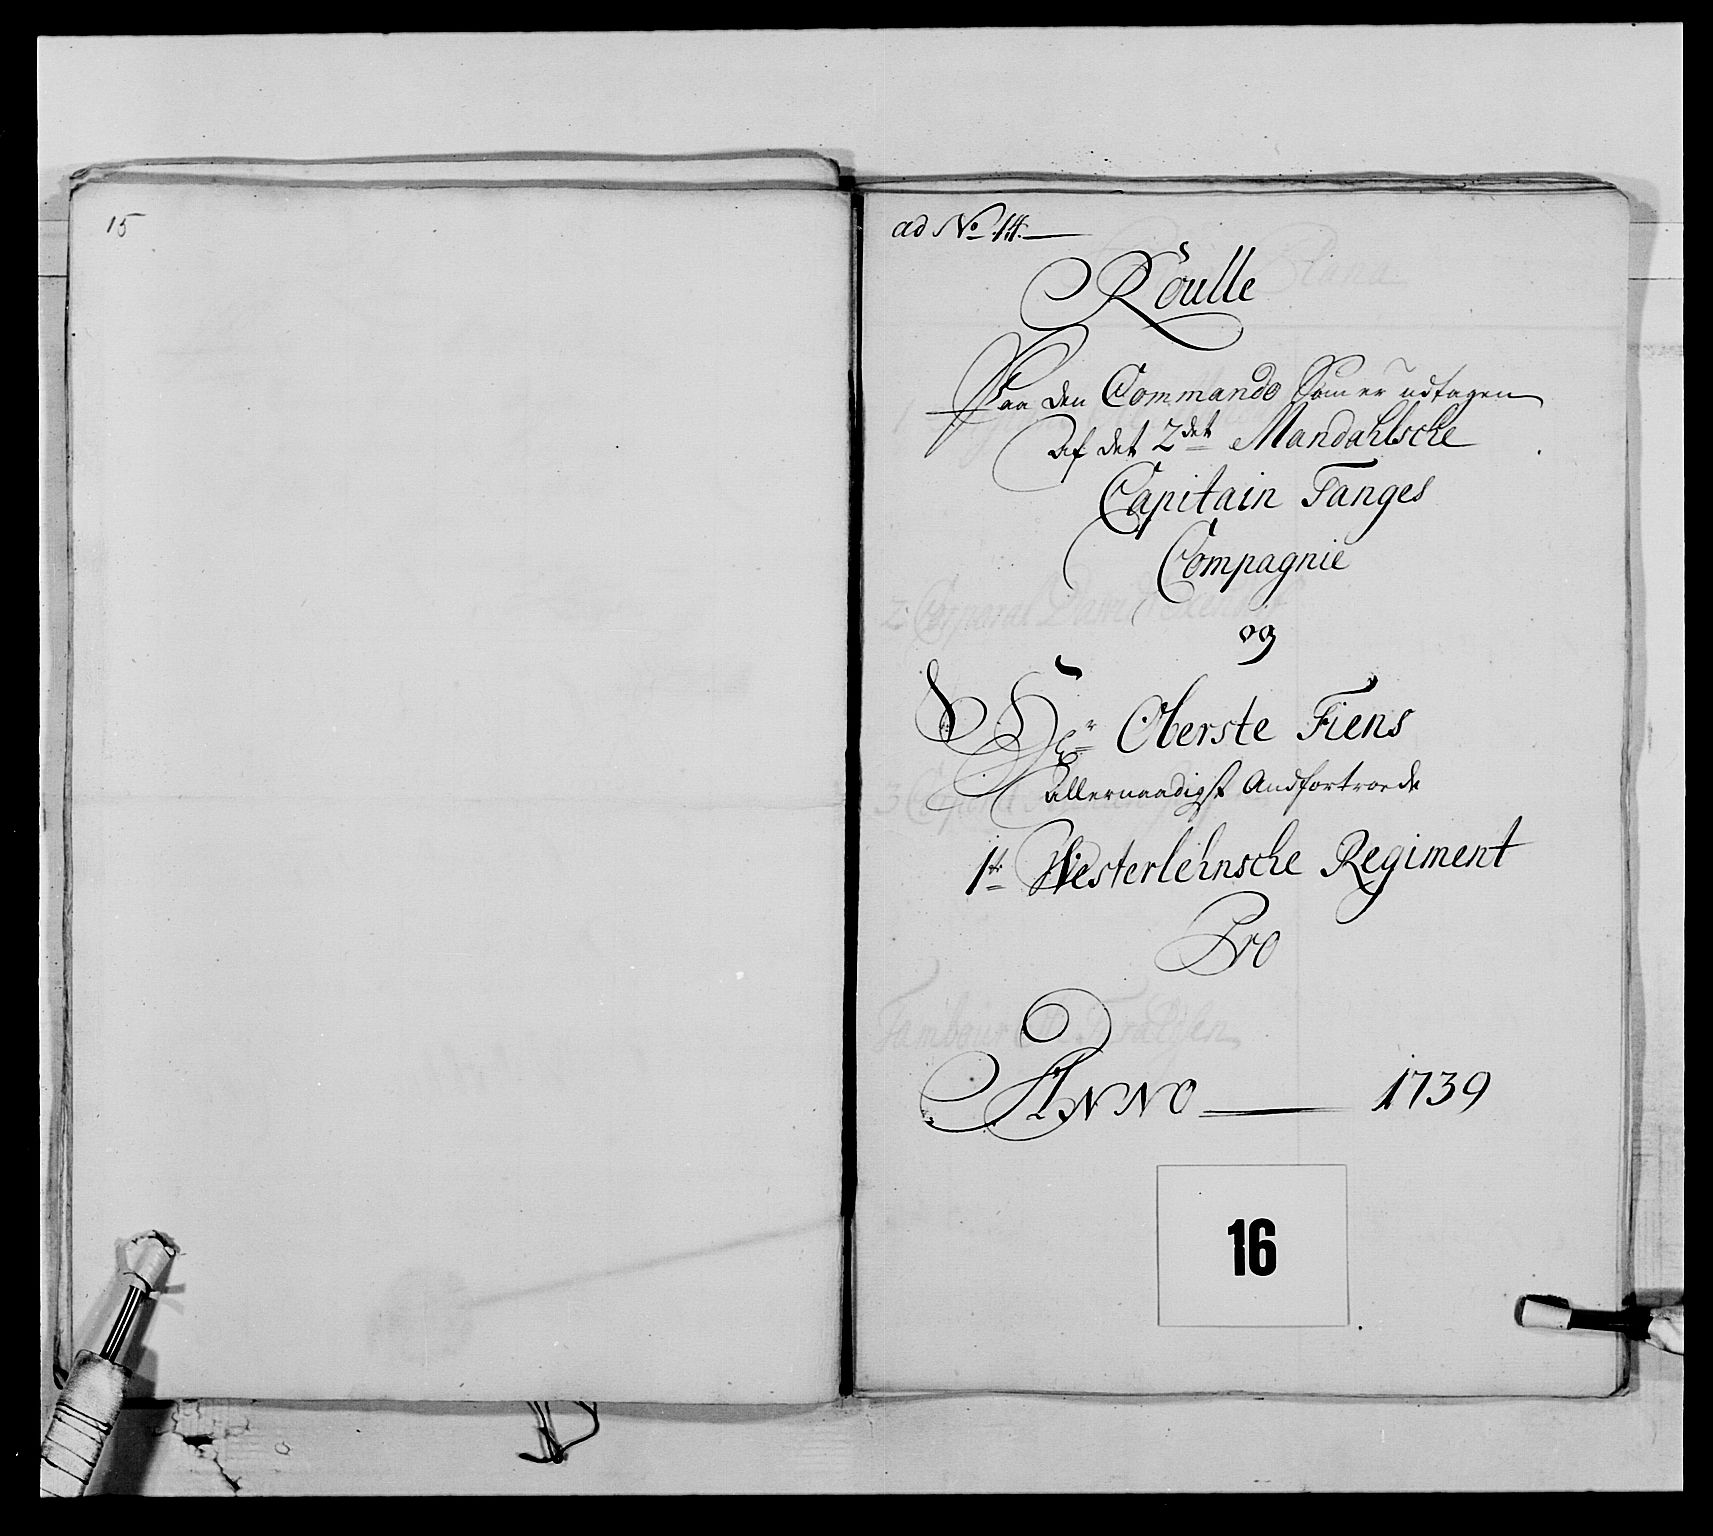 15
ad No 14.
Roulle
Paa den Commando Som er udtagen
af det 2det Mandahlsche
Capitain Tanges
Compagnie
og
Hr Oberste Fiens
allernaadigst Andfortroede
1te Westerlehnsche Regiment
Pro
ANNO 1739
16